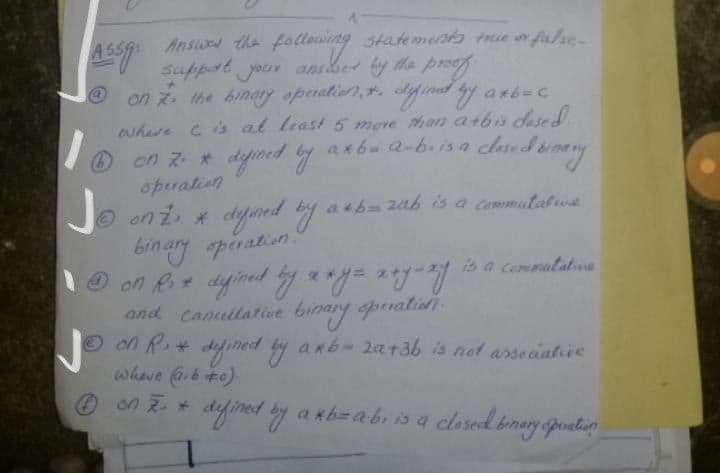 Assg: Answer the following statements true or false.
support your answer by the proof.
(a) on Z⁺, the binary operation, *, defined by a*b=c
where c is at least 5 more than a+b is closed
(b) on Z, * defined by a*b= a-b, is a closed binary
operation
(c) on Z⁺, * defined by a*b=2ab is a commutative
binary operation.
(d) on R, * defined by x*y= x+y-xy is a commutative
and cancellative binary operation.
(e) on R, * defined by a*b= 2a+3b is not associative
where (a,b ≠0)
(f) on Z⁻, * defined by a*b=a·b, is a closed binary operation